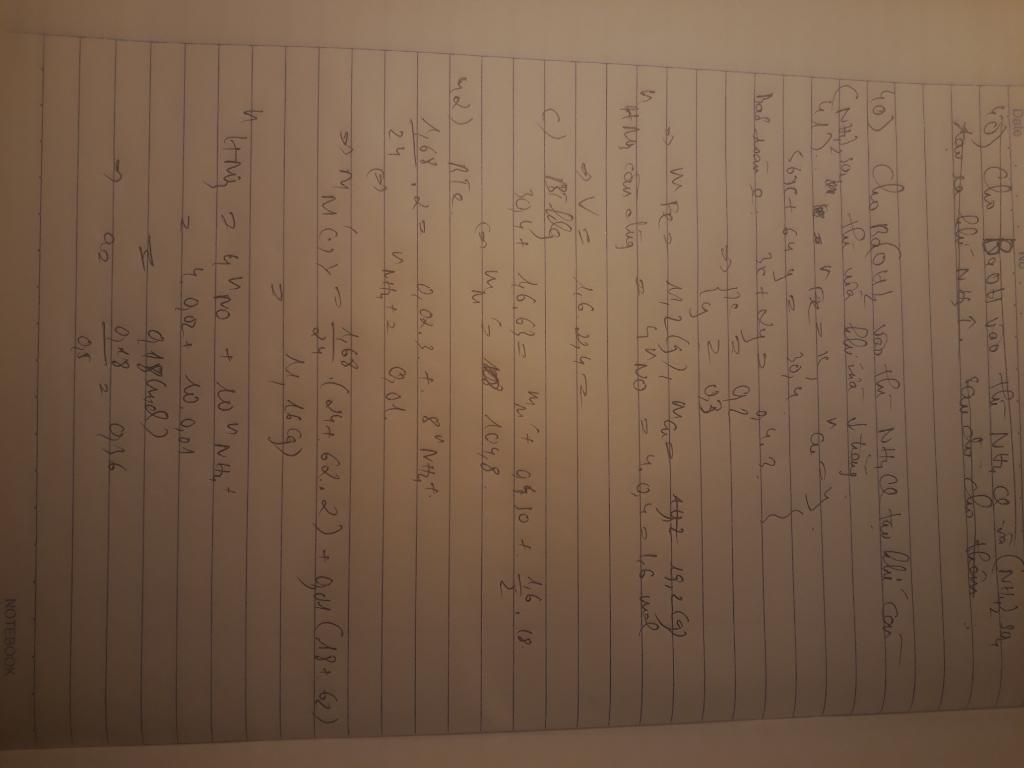 Date
No
40) Cho BaOH vào thì NH4Cl và (NH4)2SO4
tạo ra khí NH3 ↑. sau đó cho thêm
40) Cho Ba(OH)2 vào thì NH4Cl tạo khí còn
(NH4)2SO4 thì vừa khí vừa ↓ trắng.
41) nFe = x, nCu = y
56x + 64y = 30,4
Bảo toàn e 3x + 2y = 0,4.3
=> x = 0,2
y = 0,3
=> mFe = 11,2(g), mCu = 19,2(g)
nHNO3 cần dùng = 4nNO = 4.0,4 = 1,6 mol
=> V = 1,6.22,4 =
c) BTKL
30,4 + 1,6.63 = m' + 0,4.30 + 1,6/2 . 18
=> m' = 104,8
42) BTe
1,68/24 . 2 = 0,02.3 + 8nNH4+
(=) nNH4+ = 0,01
=> m M' (Y) = 1,68/24 (24 + 62.2) + 0,01 (18 + 62)
= 11,16(g)
nHNO3 = 4nNO + 10nNH4+
= 4.0,02 + 10.0,01
= 0,18(mol)
=> 0,18/0,5 = 0,36
NOTEBOOK